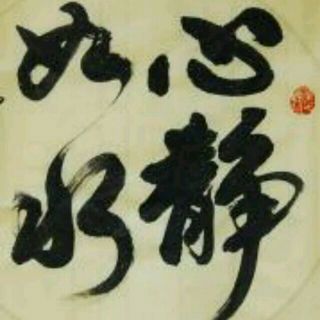 心静
如水